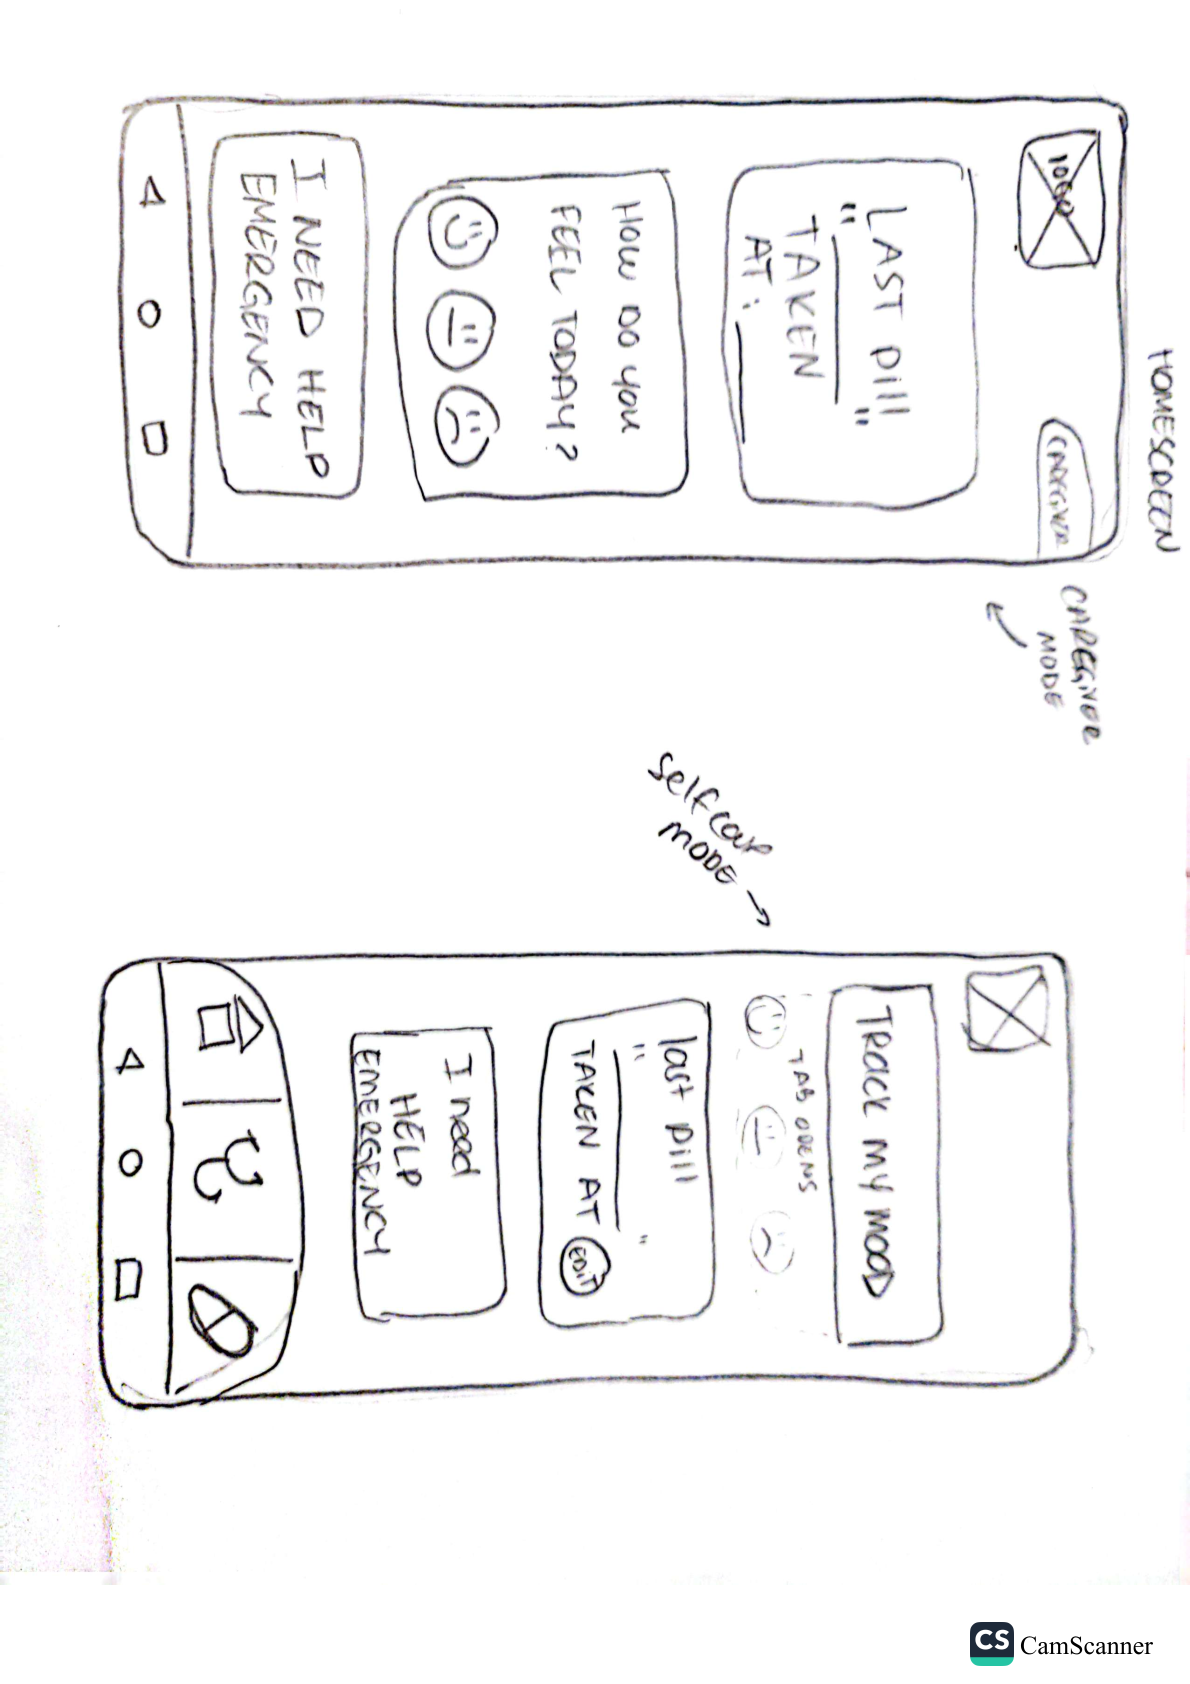 HOMESCREEN
CAREGIVER
MODE
logo
CAREGIVER
LAST pill
" "
TAKEN
AT:
HOW DO YOU
FEEL TODAY?
I NEED HELP
EMERGENCY
Selfcare
MODE
TRACK MY MOOD
TAB OPENS
last pill
" "
TAKEN AT
EDIT
I need
HELP
EMERGENCY
CS CamScanner